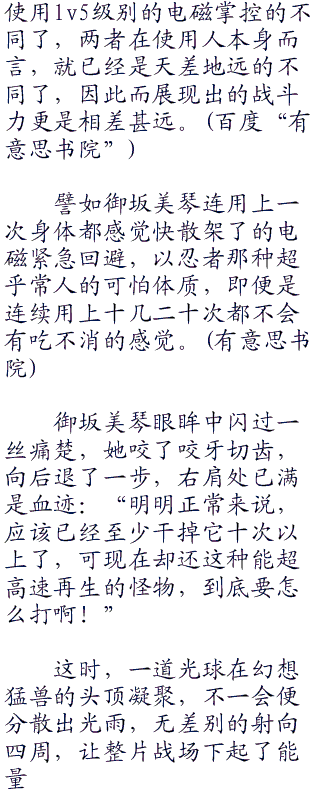 使用lv5级别的电磁掌控的不
同了，两者在使用人本身而
言，就已经是天差地远的不
同了，因此而展现出的战斗
力更是相差甚远。(百度“有
意思书院”)
譬如御坂美琴连用上一
次身体都感觉快散架了的电
磁紧急回避，以忍者那种超
乎常人的可怕体质，即便是
连续用上十几二十次都不会
有吃不消的感觉。(有意思书
院)
御坂美琴眼眸中闪过一
丝痛楚，她咬了咬牙切齿，
向后退了一步，右肩处已满
是血迹：“明明正常来说，
应该已经至少干掉它十次以
上了，可现在却还这种能超
高速再生的怪物，到底要怎
么打啊！”
这时，一道光球在幻想
猛兽的头顶凝聚，不一会便
分散出光雨，无差别的射向
四周，让整片战场下起了能
量